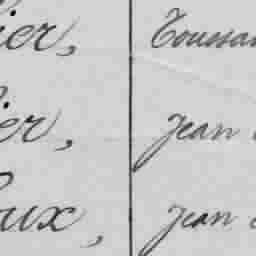 ier, Toussa
ier, Jean
oux, Jean